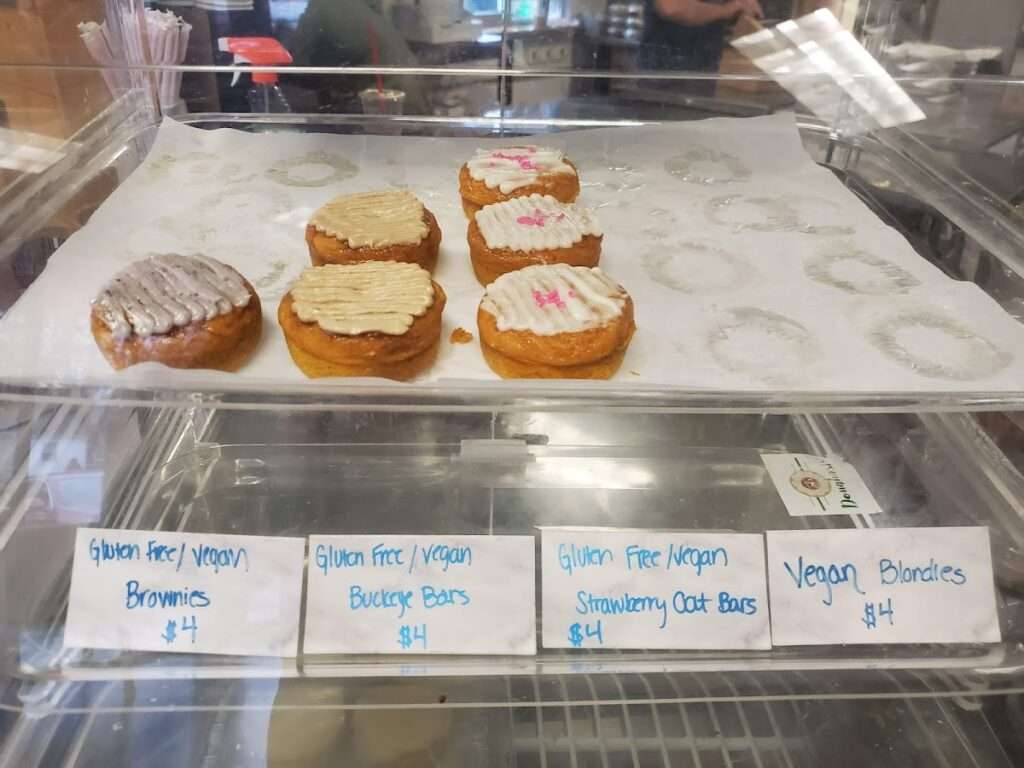 Gluten Free/Vegan
Brownies
$4
Gluten Free/Vegan
Buckeye Bars
$4
Gluten Free/Vegan
Strawberry Oat Bars
$4
Vegan Blondies
$4